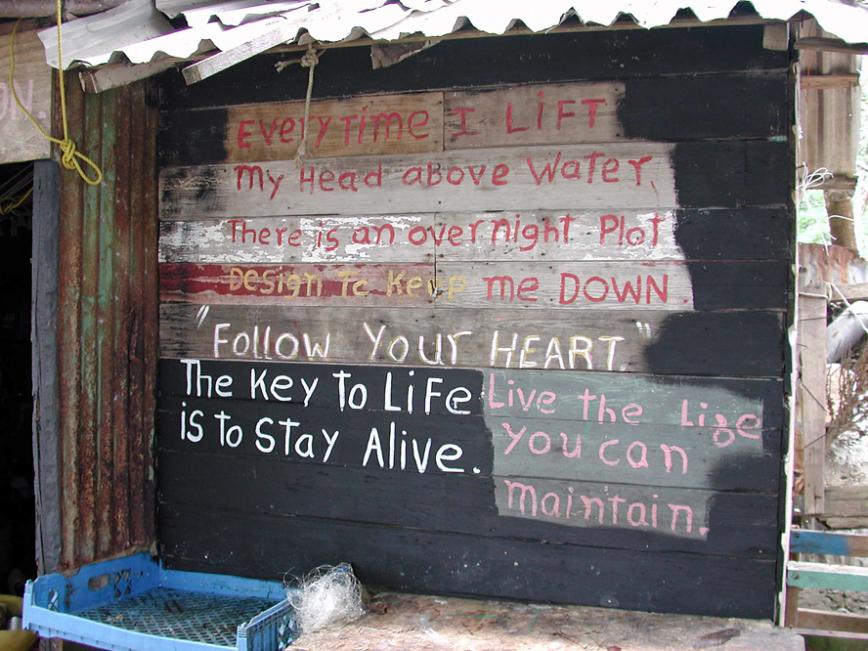 ON.
EveryTime I LiFT
My Head above Water,
There is an overnight Plot
Design To Keep me DOWN.
"Follow Your HEART."
The Key To LiFe
is to Stay Alive.
Live the Lige
You can
maintain.